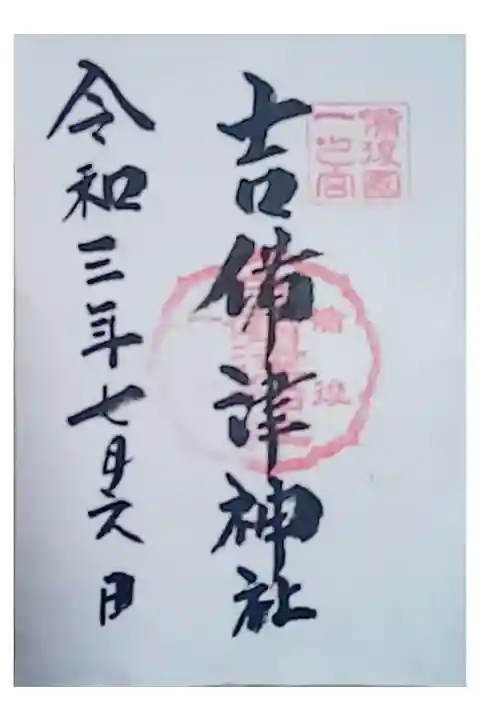 備後國
一之宮
吉備津神社
備後
一
令和三年七月六日